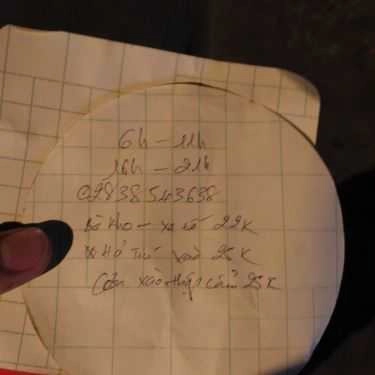 6h - 11h
16h - 21h
02838543638
Bò kho - xa tế 22K
Hủ Tiếu xào 25K
Cơm xào thập cẩm 25K